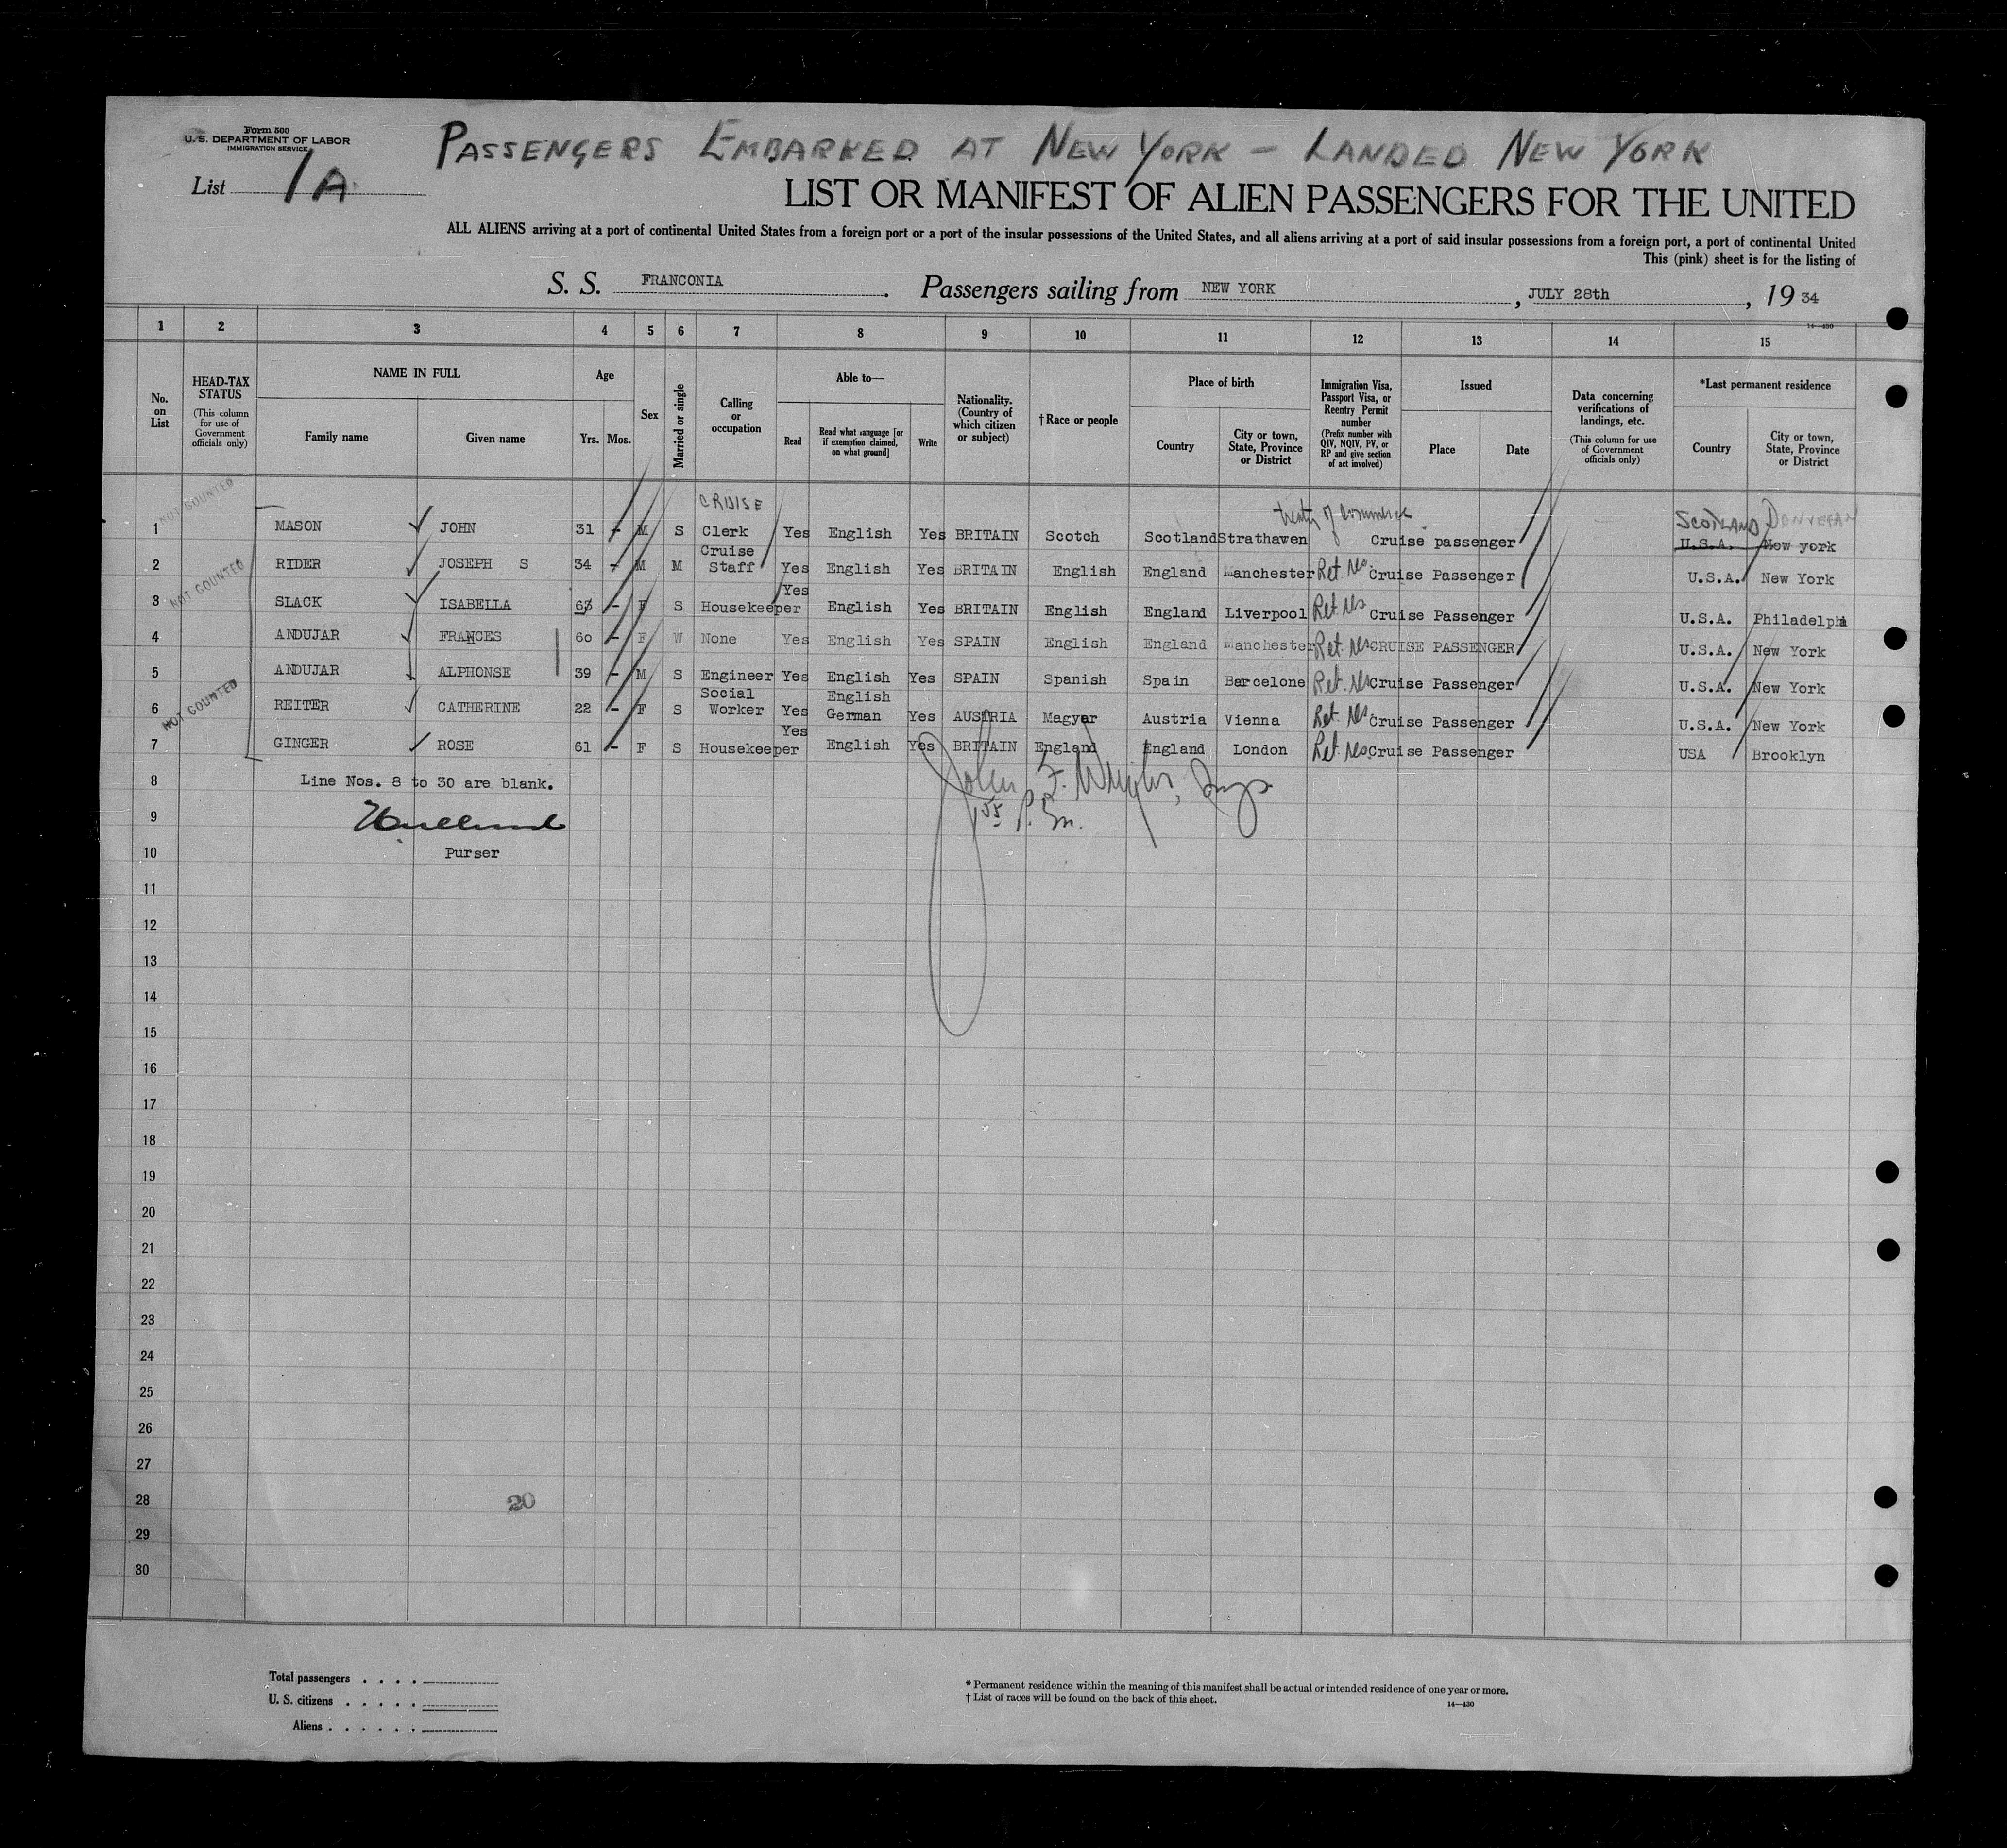 Form 500
U. S. DEPARTMENT OF LABOR
IMMIGRATION SERVICE
PASSENGERS EMBARKED AT NEW YORK – LANDED NEW YORK
List 1A
LIST OR MANIFEST OF ALIEN PASSENGERS FOR THE UNITED
ALL ALIENS arriving at a port of continental United States from a foreign port or a port of the insular possessions of the United States, and all aliens arriving at a port of said insular possessions from a foreign port, a port of continental United
This (pink) sheet is for the listing of
S. S. FRANCONIA. Passengers sailing from NEW YORK, JULY 28th, 19 34
14—430
1 2 3 4 5 6 7 8 9 10 11 12 13 14 15
No. on List
HEAD-TAX STATUS
(This column for use of Government officials only)
NAME IN FULL
Family name
Given name
Age
Yrs. Mos.
Sex
Married or single
Calling or occupation
Able to—
Read
Read what language [or if exemption claimed, on what ground]
Write
Nationality. (Country of which citizen or subject)
† Race or people
Place of birth
Country
City or town, State, Province or District
Immigration Visa, Passport Visa, or Reentry Permit number
(Prefix number with QIV, NQIV, PV, or RP and give section of act involved)
Issued
Place
Date
Data concerning verifications of landings, etc.
(This column for use of Government officials only)
*Last permanent residence
Country
City or town, State, Province or District
NOT COUNTED
CRUISE
treaty of commerce
SCOTLAND
1 MASON JOHN 31 - M S Clerk Yes English Yes BRITAIN Scotch Scotland Strathaven Cruise passenger U.S.A. New york
2 RIDER JOSEPH S 34 - M M Cruise Staff Yes English Yes BRITAIN English England Manchester Ret. res Cruise Passenger U.S.A. New York
NOT COUNTED
3 SLACK ISABELLA 63 - F S Housekeeper Yes English Yes BRITAIN English England Liverpool Ret. res Cruise Passenger U.S.A. Philadelphia
4 ANDUJAR FRANCES 60 - F W None Yes English Yes SPAIN English England Manchester Ret. res CRUISE PASSENGER U.S.A. New York
5 ANDUJAR ALPHONSE 39 - M S Engineer Yes English Yes SPAIN Spanish Spain Barcelone Ret. res Cruise Passenger U.S.A. New York
NOT COUNTED
6 REITER CATHERINE 22 - F S Social Worker Yes English German Yes AUSTRIA Magyar Austria Vienna Ret. res Cruise Passenger U.S.A. New York
7 GINGER ROSE 61 - F S Housekeeper Yes English Yes BRITAIN England England London Ret. res Cruise Passenger USA Brooklyn
8 Line Nos. 8 to 30 are blank.
9
10 Purser
11
12
13
14
15
16
17
18
19
20
21
22
23
24
25
26
27
28 20
29
30
Total passengers . . . .
U. S. citizens . . . . .
Aliens . . . . . .
* Permanent residence within the meaning of this manifest shall be actual or intended residence of one year or more.
† List of races will be found on the back of this sheet.
14—430